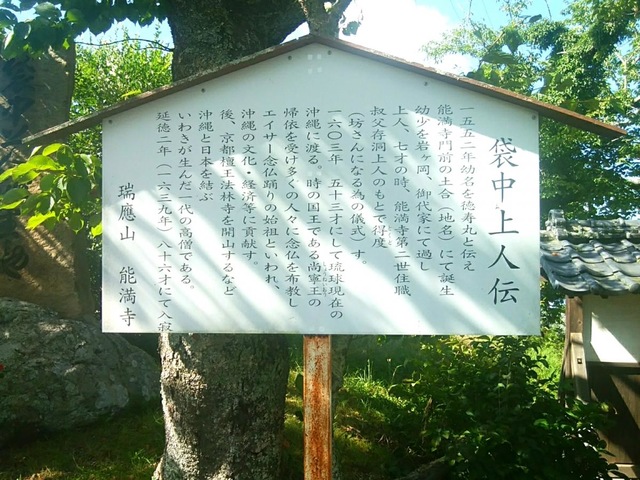 袋中上人伝
一五五二年幼名を徳寿丸と伝え
能満寺門前の土合(地名)にて誕生
幼少を岩ヶ岡、御代家にて過し
上人、七才の時、能満寺第二世住職
叔父存洞上人のもとで得度
(坊さんになる為の儀式)す。
一六〇三年 五十二才にして琉球現在の
沖縄に渡る。時の国王である尚寧王の
帰依を受け多くの人々に念仏を布教し
エイサー念仏踊りの始祖といわれ、
沖縄の文化・経済等に貢献す。
後、京都檀王法林寺を開山するなど
沖縄と日本を結ぶ
いわきが生んだ一代の高僧である。
延徳二年(一六三九年)八十六才にて入寂
瑞應山 能満寺